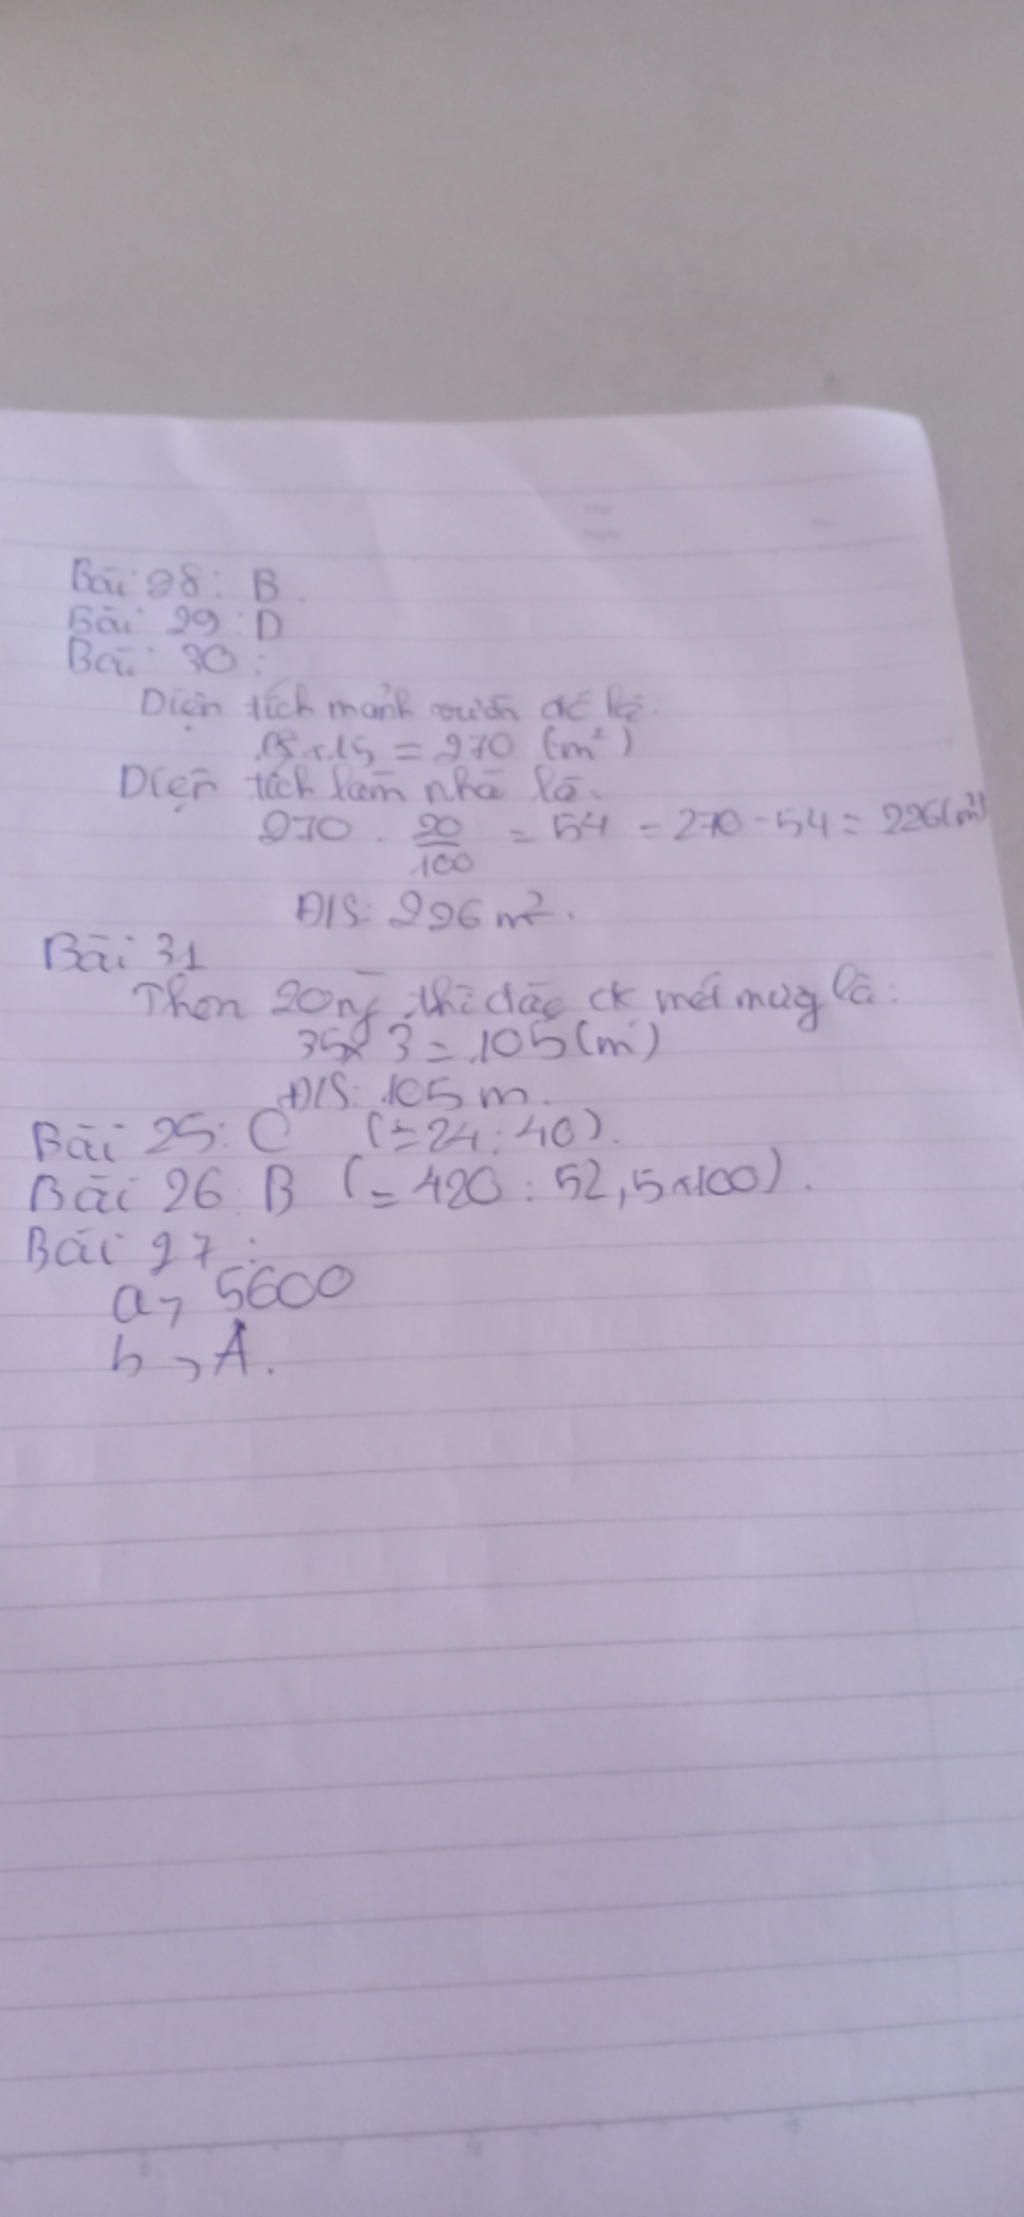 Bài 28: B.
Bài 29: D
Bài 30:
Diện tích mảnh vườn đó là:
18 x 15 = 270 (m²)
Diện tích làm nhà là:
270 . 20/100 = 54 = 270 - 54 = 226 (m²)
Đ/S: 226 m².
Bài 31
20 thì đào mét mương là:
35 x 3 = 105 (m)
Đ/S: 105 m.
Bài 25: C (= 24 : 40).
Bài 26: B (= 420 : 52,5 x 100).
Bài 27:
a, 5600
b, A.